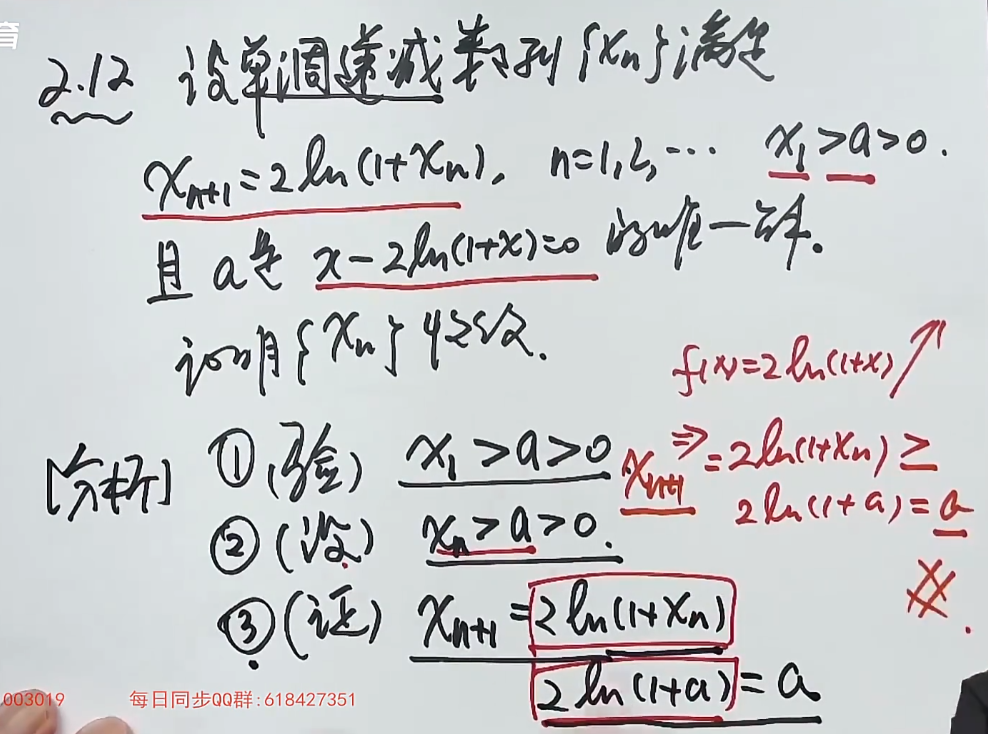 育
2.12 设单调递减数列{xₙ}满足
xₙ₊₁=2ln(1+xₙ), n=1,2,… x₁>a>0.
且a是 x-2ln(1+x)=0 的唯一解.
证明{xₙ}收敛.
f(x)=2ln(1+x)↗
[分析] ①(验) x₁>a>0
⇒
xₙ₊₁=2ln(1+xₙ)≥
2ln(1+a)=a
②(设) xₙ>a>0.
③(证) xₙ₊₁=2ln(1+xₙ)
2ln(1+a)=a
003019 每日同步QQ群:618427351